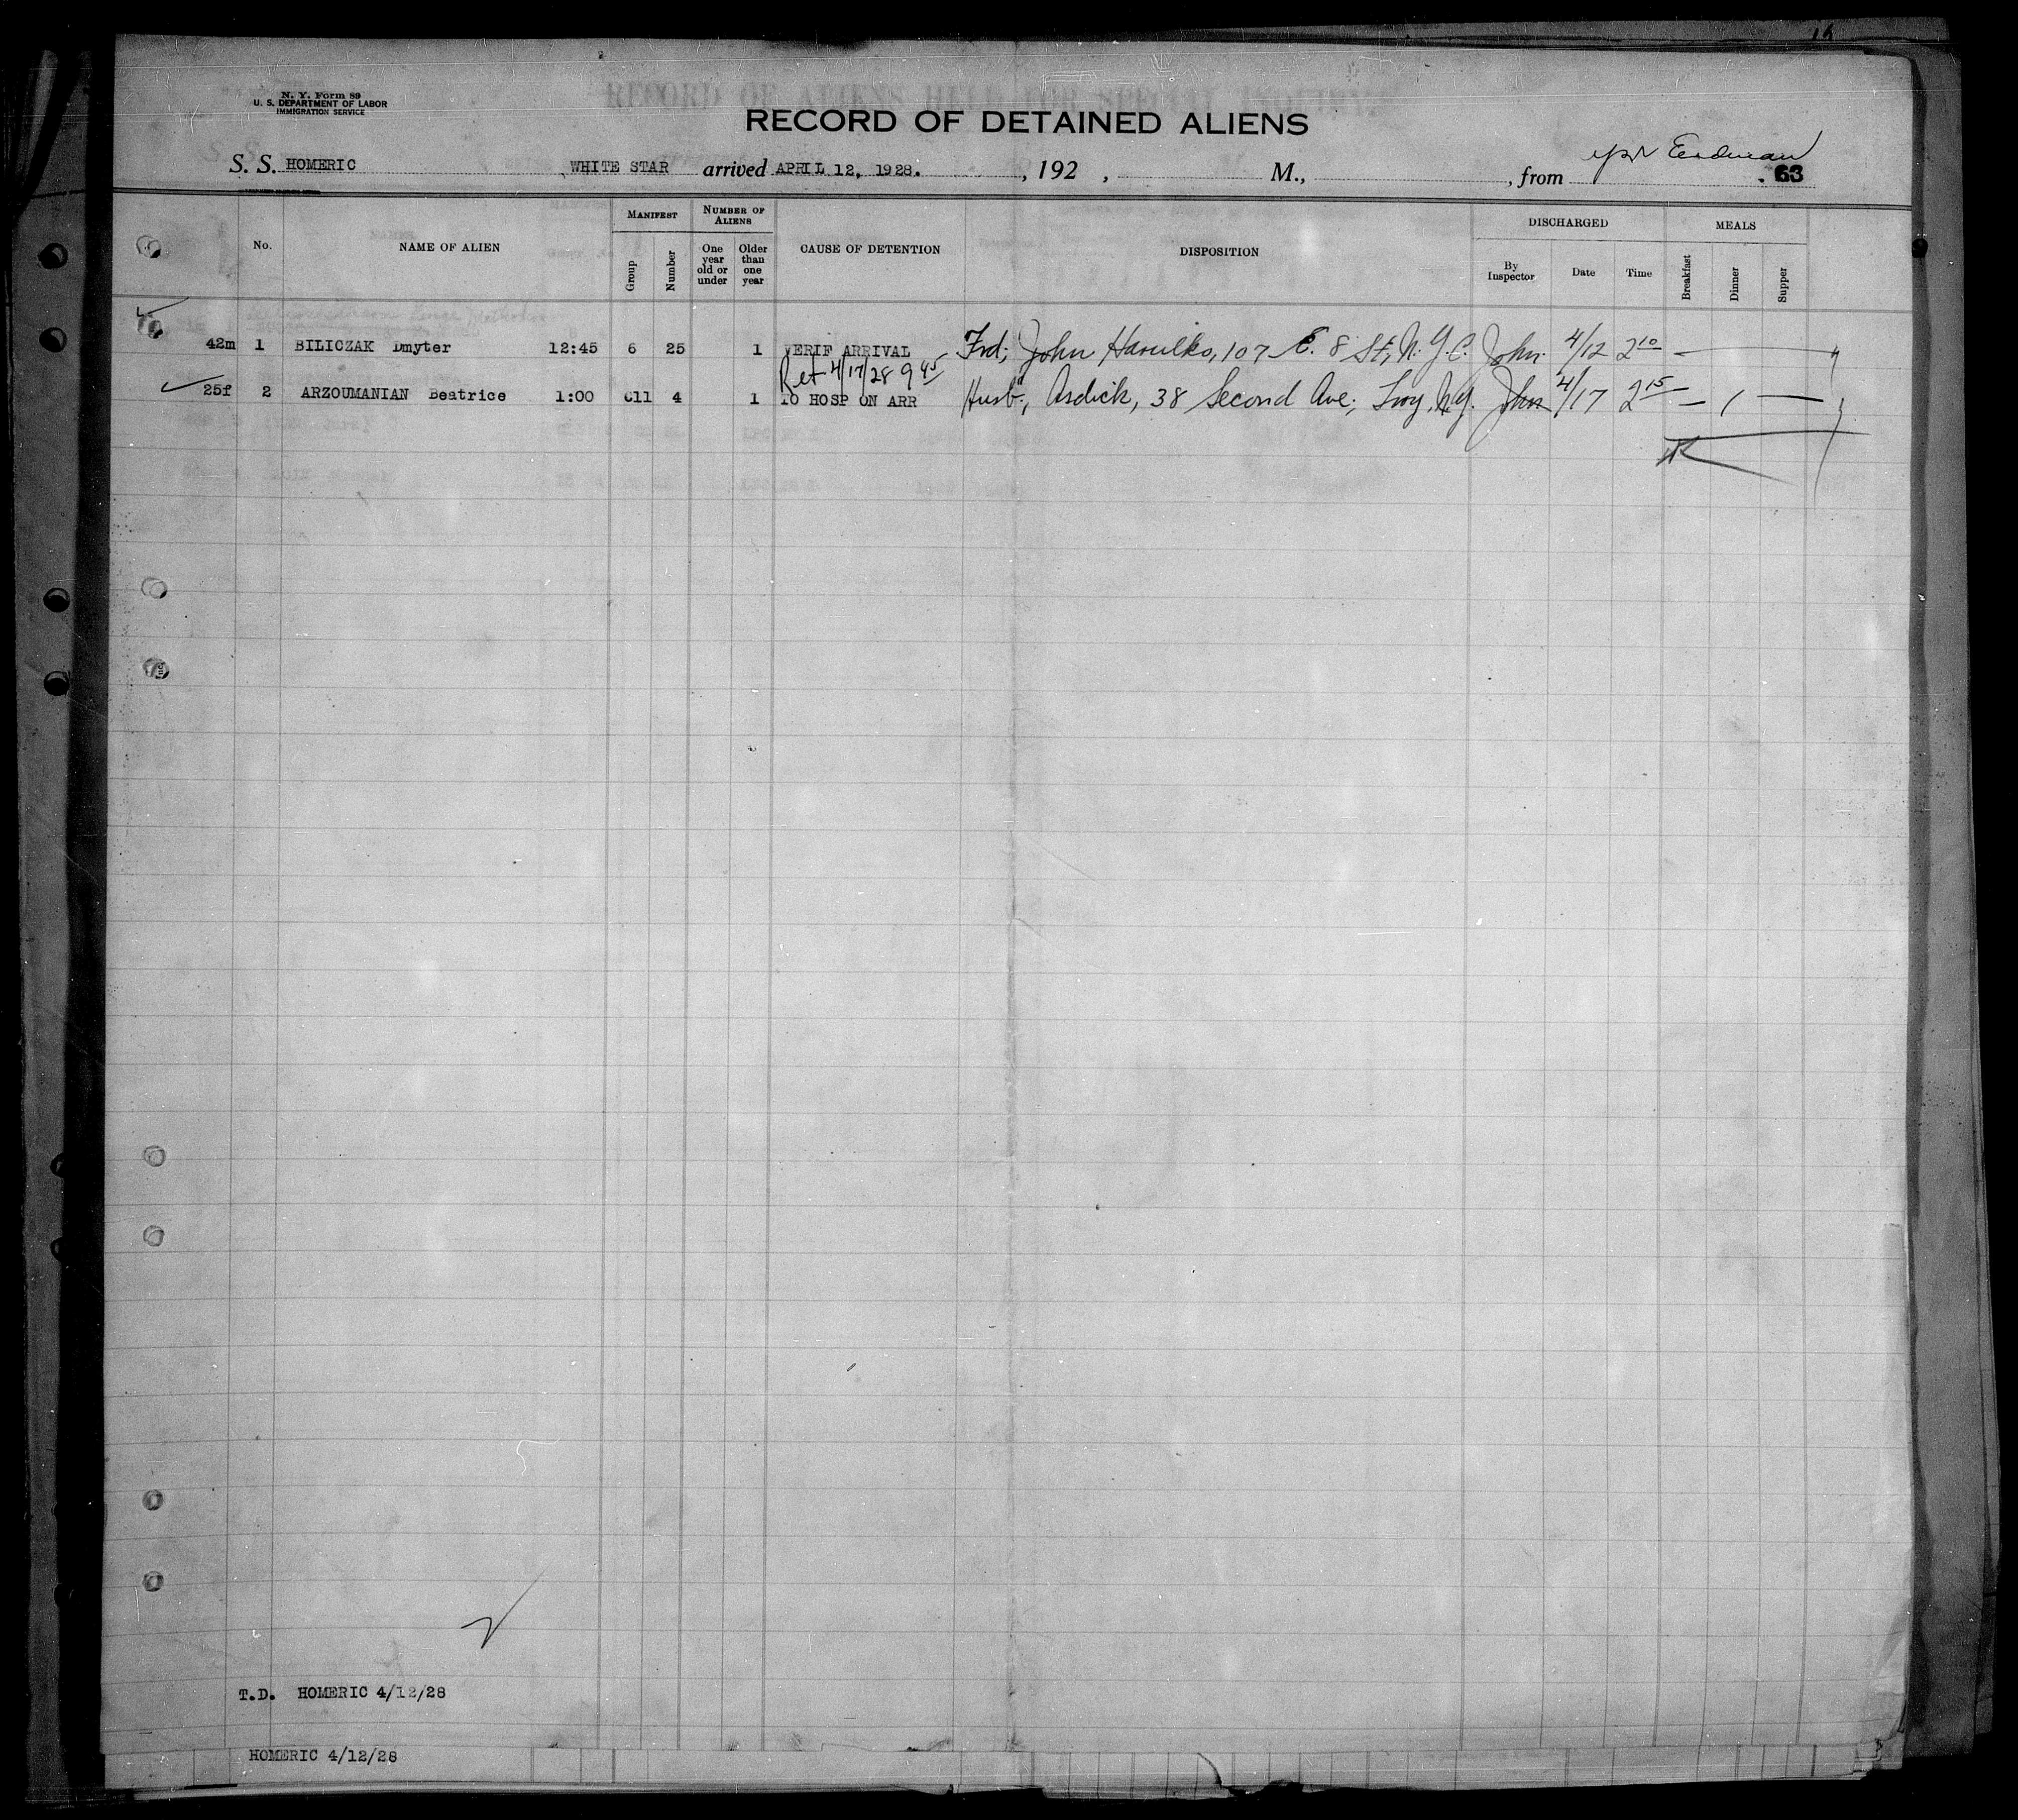 N. Y. Form 89
U. S. DEPARTMENT OF LABOR
IMMIGRATION SERVICE
RECORD OF DETAINED ALIENS
S. S. HOMERIC WHITE STAR arrived APRIL 12, 1928. , 192 , M., , from
63
No. NAME OF ALIEN MANIFEST Group Number NUMBER OF ALIENS One year old or under Older than one year CAUSE OF DETENTION DISPOSITION DISCHARGED By Inspector Date Time MEALS Breakfast Dinner Supper
42m 1 BILICZAK Dmyter 12:45 6 25 1 VERIF ARRIVAL Frd, John Hawilko, 107 E. 8 St, N.Y.C. John. 4/12 2 10 —
Ret 4/17/28 9 45
25f 2 ARZOUMANIAN Beatrice 1:00 c11 4 1 TO HOSP ON ARR Husb, Asdick, 38 Second Ave, Troy, N.Y. John 4/17 2 15 — 1 —
T.D. HOMERIC 4/12/28
HOMERIC 4/12/28